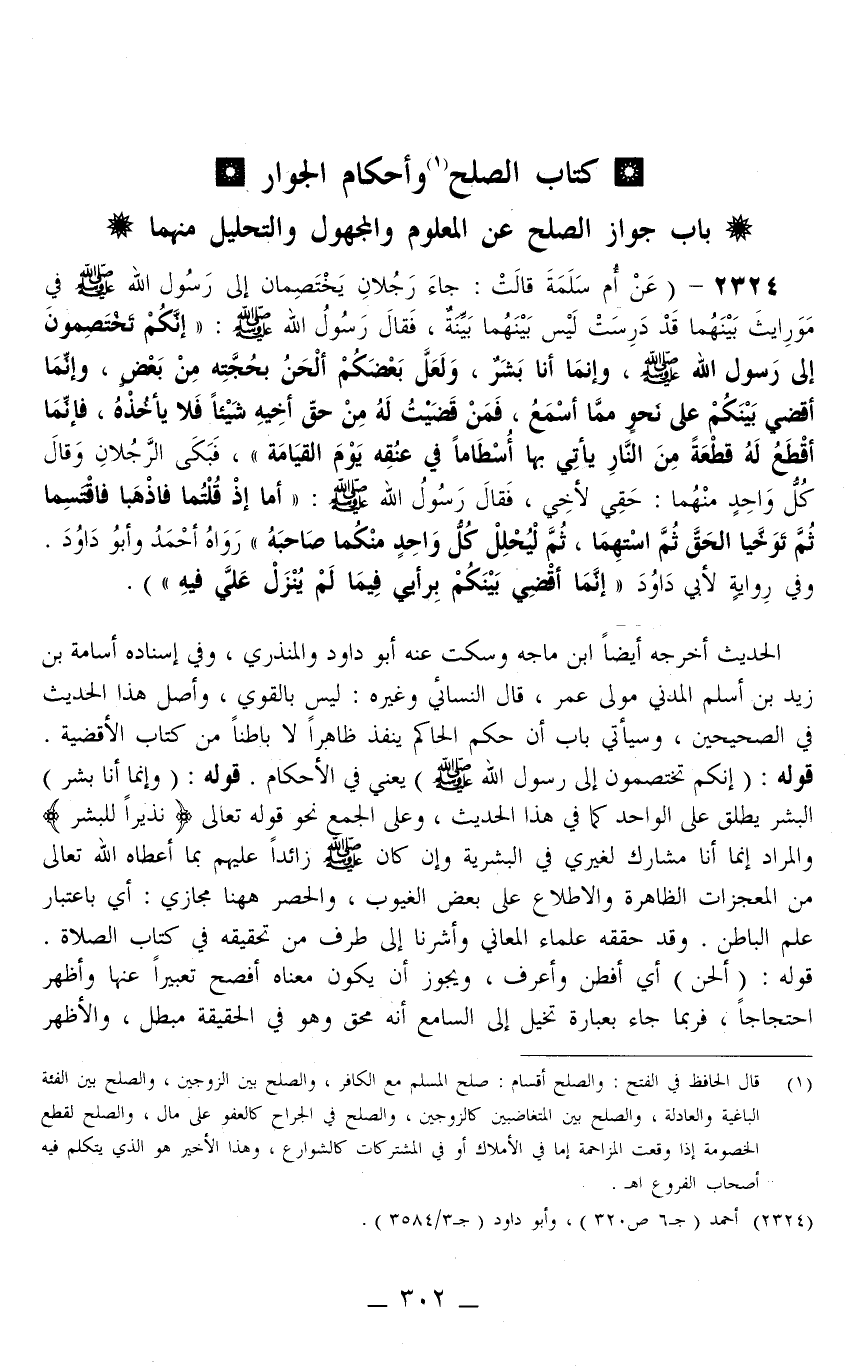 كتاب الصلح(١) وأحكام الجوار
باب جواز الصلح عن المعلوم والمجهول والتحليل منهما
٢٣٢٤ – ( عَنْ أُم سَلَمَةَ قالَتْ : جاءَ رَجُلانِ يَخْتَصِمان إلى رَسُولِ الله ﷺ في
مَوَرايثَ بَيْنَهُما قَدْ دَرِسَتْ لَيْس بَيْنَهُما بَيِّنَةٌ ، فَقالَ رَسُولُ الله ﷺ : « إنَّكُمْ تَخْتَصِمُونَ
إلى رَسول الله ﷺ ، وإنمَا أنا بَشَرٌ ، وَلَعَلَّ بَعْضَكُمْ ألْحَنُ بحُجَّتِه مِنْ بَعْضٍ ، وإنَّمَا
أقضي بَيْنَكُمْ على نَحوٍ ممَّا أسْمَعُ ، فَمَنْ قَضَيْتُ لَهُ مِنْ حقّ أخِيهِ شَيْئاً فَلا يأخُذْهُ ، فإنَّمَا
أقْطَعُ لَهُ قطْعَةً مِنَ النَّارِ يأتِي بها أُسْطَاماً في عنُقِه يَوْمَ القيَامَة » ، فَبَكَى الرَّجُلانِ وَقالَ
كُلُّ وَاحِدٍ منْهُما : حَقِي لأخِي ، فَقالَ رَسُولُ الله ﷺ : « أما إذْ قُلْتُما فاذْهَبا فاقْتَسِما
ثُمَّ تَوَخَّيا الحَقَّ ثُمَّ اسْتهِمَا ، ثُمَّ لْيُحْلِلْ كُلُّ وَاحِدٍ منْكُما صاحبَهُ » رَوَاهُ أحْمَدُ وأبُو دَاوُدَ .
وفي رِوايةٍ لأبي دَاوُدَ « إنَّمَا أقْضِي بَيْنَكُمْ برأيي فِيمَا لَمْ يُنْزَلْ عَليَّ فيهِ » ) .
الحديث أخرجه أيضاً ابن ماجه وسكت عنه أبو داود والمنذري ، وفي إسناده أسامة بن
زيد بن أسلم المدني مولى عمر ، قال النسائي وغيره : ليس بالقوي ، وأصل هذا الحديث
في الصحيحين ، وسيأتي باب أن حكم الحاكم ينفذ ظاهراً لا باطناً من كتاب الأقضية .
قوله : ( إنكم تختصمون إلى رسول الله ﷺ ) يعني في الأحكام . قوله : ( وإنما أنا بشر )
البشر يطلق على الواحد كما في هذا الحديث ، وعلى الجمع نحو قوله تعالى ﴿ نذيراً للبشر ﴾
والمراد إنما أنا مشارك لغيري في البشرية وإن كان ﷺ زائداً عليهم بما أعطاه الله تعالى
من المعجزات الظاهرة والاطلاع على بعض الغيوب ، والحصر ههنا مجازي : أي باعتبار
علم الباطن . وقد حققه علماء المعاني وأشرنا إلى طرف من تحقيقه في كتاب الصلاة .
قوله : ( ألحن ) أي أفطن وأعرف ، ويجوز أن يكون معناه أفصح تعبيراً عنها وأظهر
احتجاجاً ، فربما جاء بعبارة تخيل إلى السامع أنه محق وهو في الحقيقة مبطل ، والأظهر
(١) قال الحافظ في الفتح : والصلح أقسام : صلح المسلم مع الكافر ، والصلح بين الزوجين ، والصلح بين الفئة
الباغية والعادلة ، والصلح بين المتغاضبين كالزوجين ، والصلح في الجراح كالعفو على مال ، والصلح لقطع
الخصومة إذا وقعت المزاحمة إما في الأملاك أو في المشتركات كالشوارع ، وهذا الأخير هو الذي يتكلم فيه
أصحاب الفروع اهـ .
(٢٣٢٤) أحمد ( جـ٦ ص٣٢٠ ) ، وأبو داود ( جـ٣/٣٥٨٤ ) .
_ ٣٠٢ _